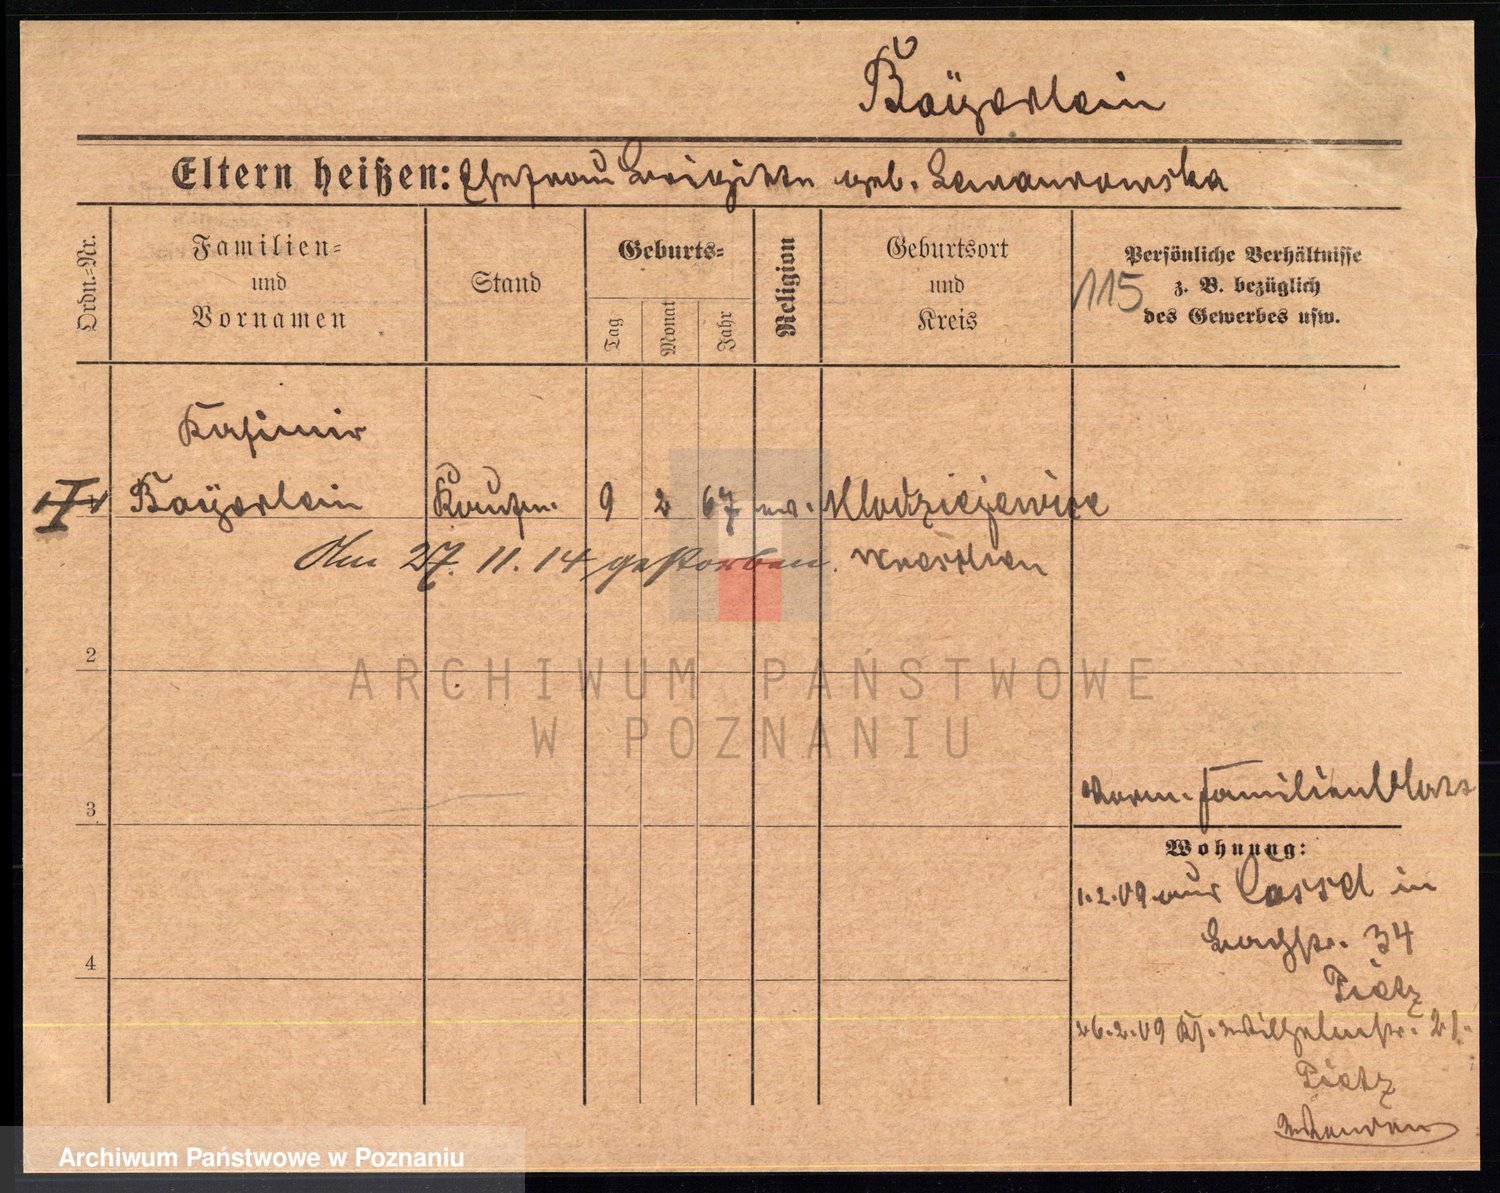 Bayerlein
Eltern heißen: Ehefrau Brigitte geb. Lewandowska
Ordn.-Nr.
Familien-
und
Vornamen
Stand
Geburts-
Tag
Monat
Jahr
Religion
Geburtsort
und
Kreis
115
Persönliche Verhältnisse
z. B. bezüglich
des Gewerbes usw.
Kasimir
Bayerlein Kaufm. 9 2 67 Mlodziejewice
Am 27. 11. 14 gestorben. Wreschen
2
3
4
Familienblatt
Wohnung:
1.2.09 aus Cassel in
Bachstr. 34
Pietz
26.2.09 Ks. Wilhelmstr. 21.
Pietz
ARCHIWUM PAŃSTWOWE
W POZNANIU
Archiwum Państwowe w Poznaniu